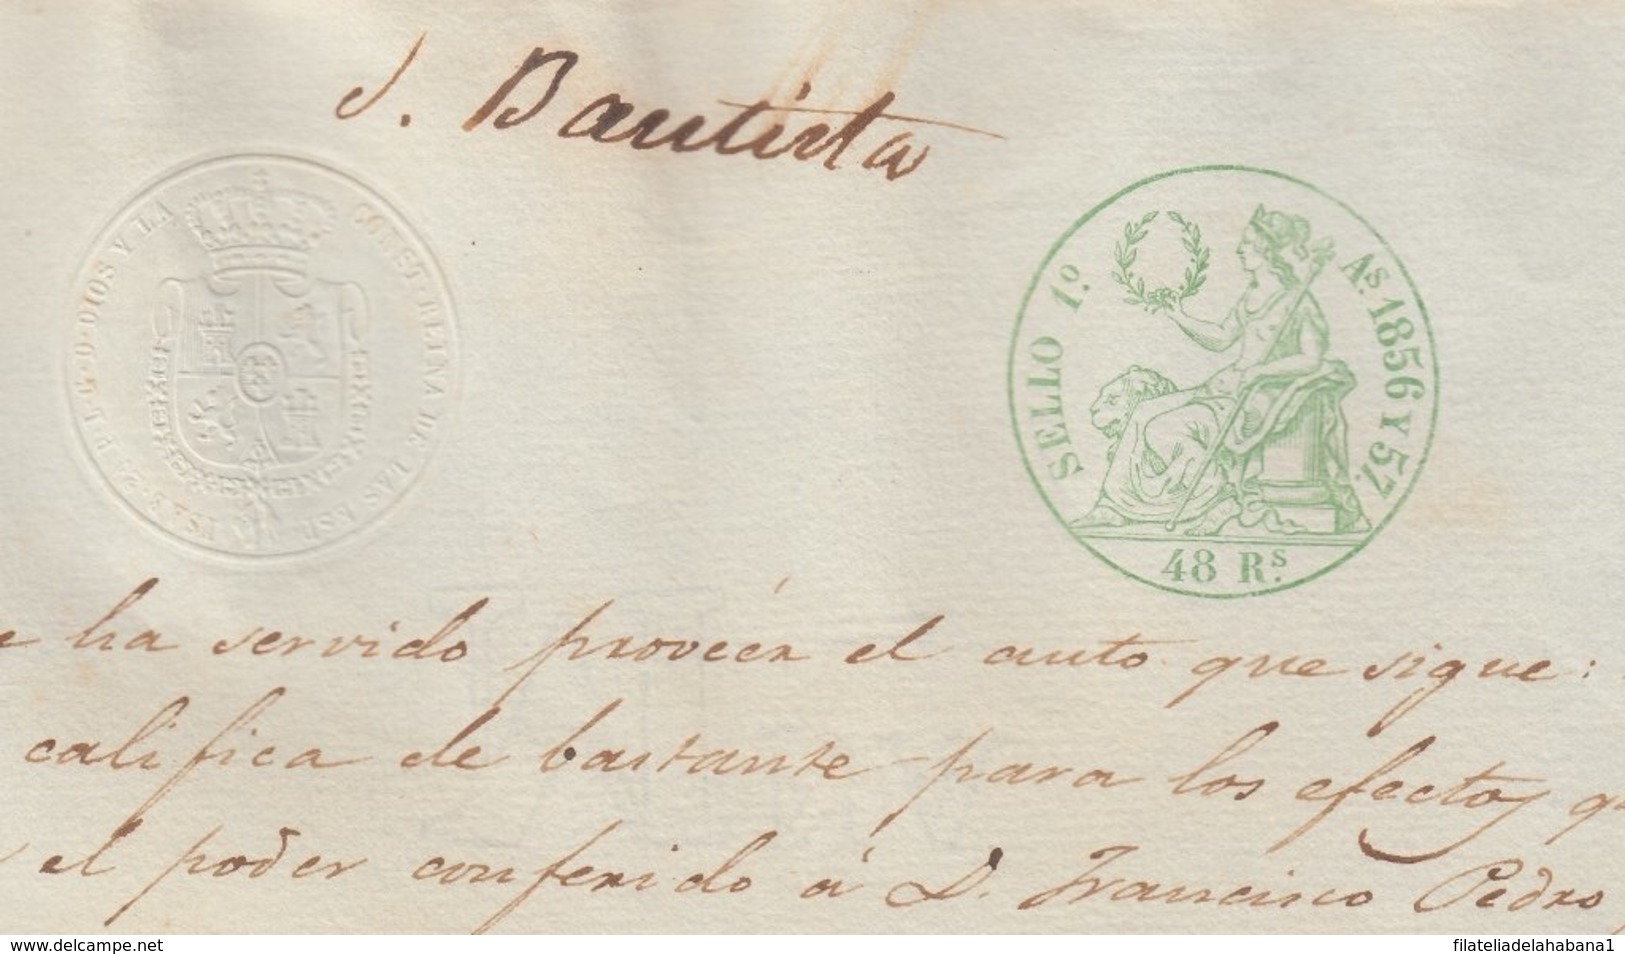 J. Bautista
ISAB. 2ª P. L. G. D. DIOS Y LA CONST. REINA DE LAS ESP.
SELLO 1.º
Aˢ. 1856 Y 57.
48 Rˢ.
ha servido proveér el auto que sigue:
califica de bastante para los efectos
el poder conferido á D. Francisco Pedro
www.delcampe.net
filateliadelahabana1